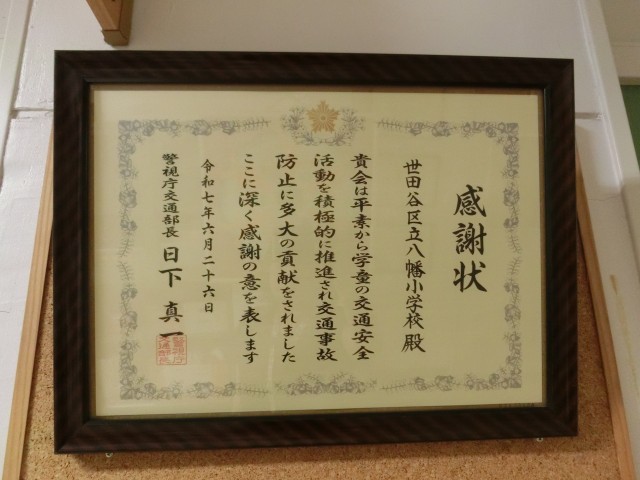 感謝状
世田谷区立八幡小学校 殿
貴会は平素から学童の交通安全
活動を積極的に推進され交通事故
防止に多大の貢献をされました
ここに深く感謝の意を表します
令和七年六月二十六日
警視庁交通部長 日下真一